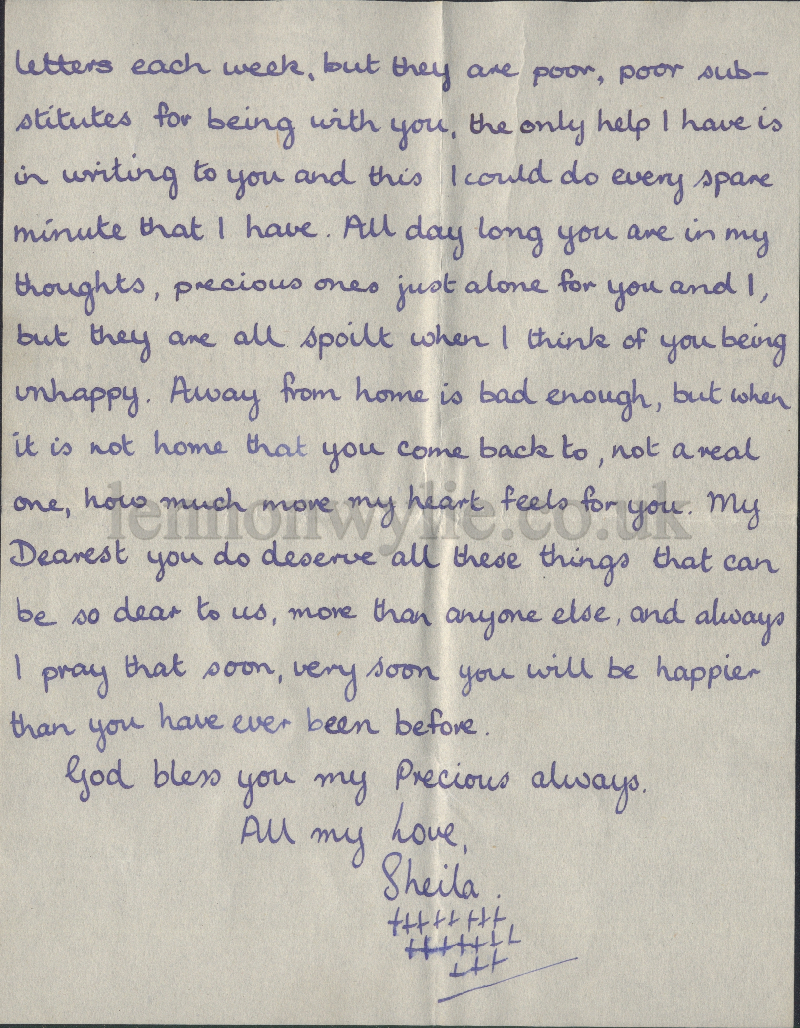 letters each week, but they are poor, poor sub-
stitutes for being with you, the only help I have is
in writing to you and this I could do every spare
minute that I have. All day long you are in my
thoughts, precious ones just alone for you and I,
but they are all spoilt when I think of you being
unhappy. Away from home is bad enough, but when
it is not home that you come back to, not a real
one, how much more my heart feels for you. My
lennonwylie.co.uk
Dearest you do deserve all these things that can
be so dear to us, more than anyone else, and always
I pray that soon, very soon you will be happier
than you have ever been before.
God bless you my Precious always.
All my Love,
Sheila.
+++++++
++++++++
+++